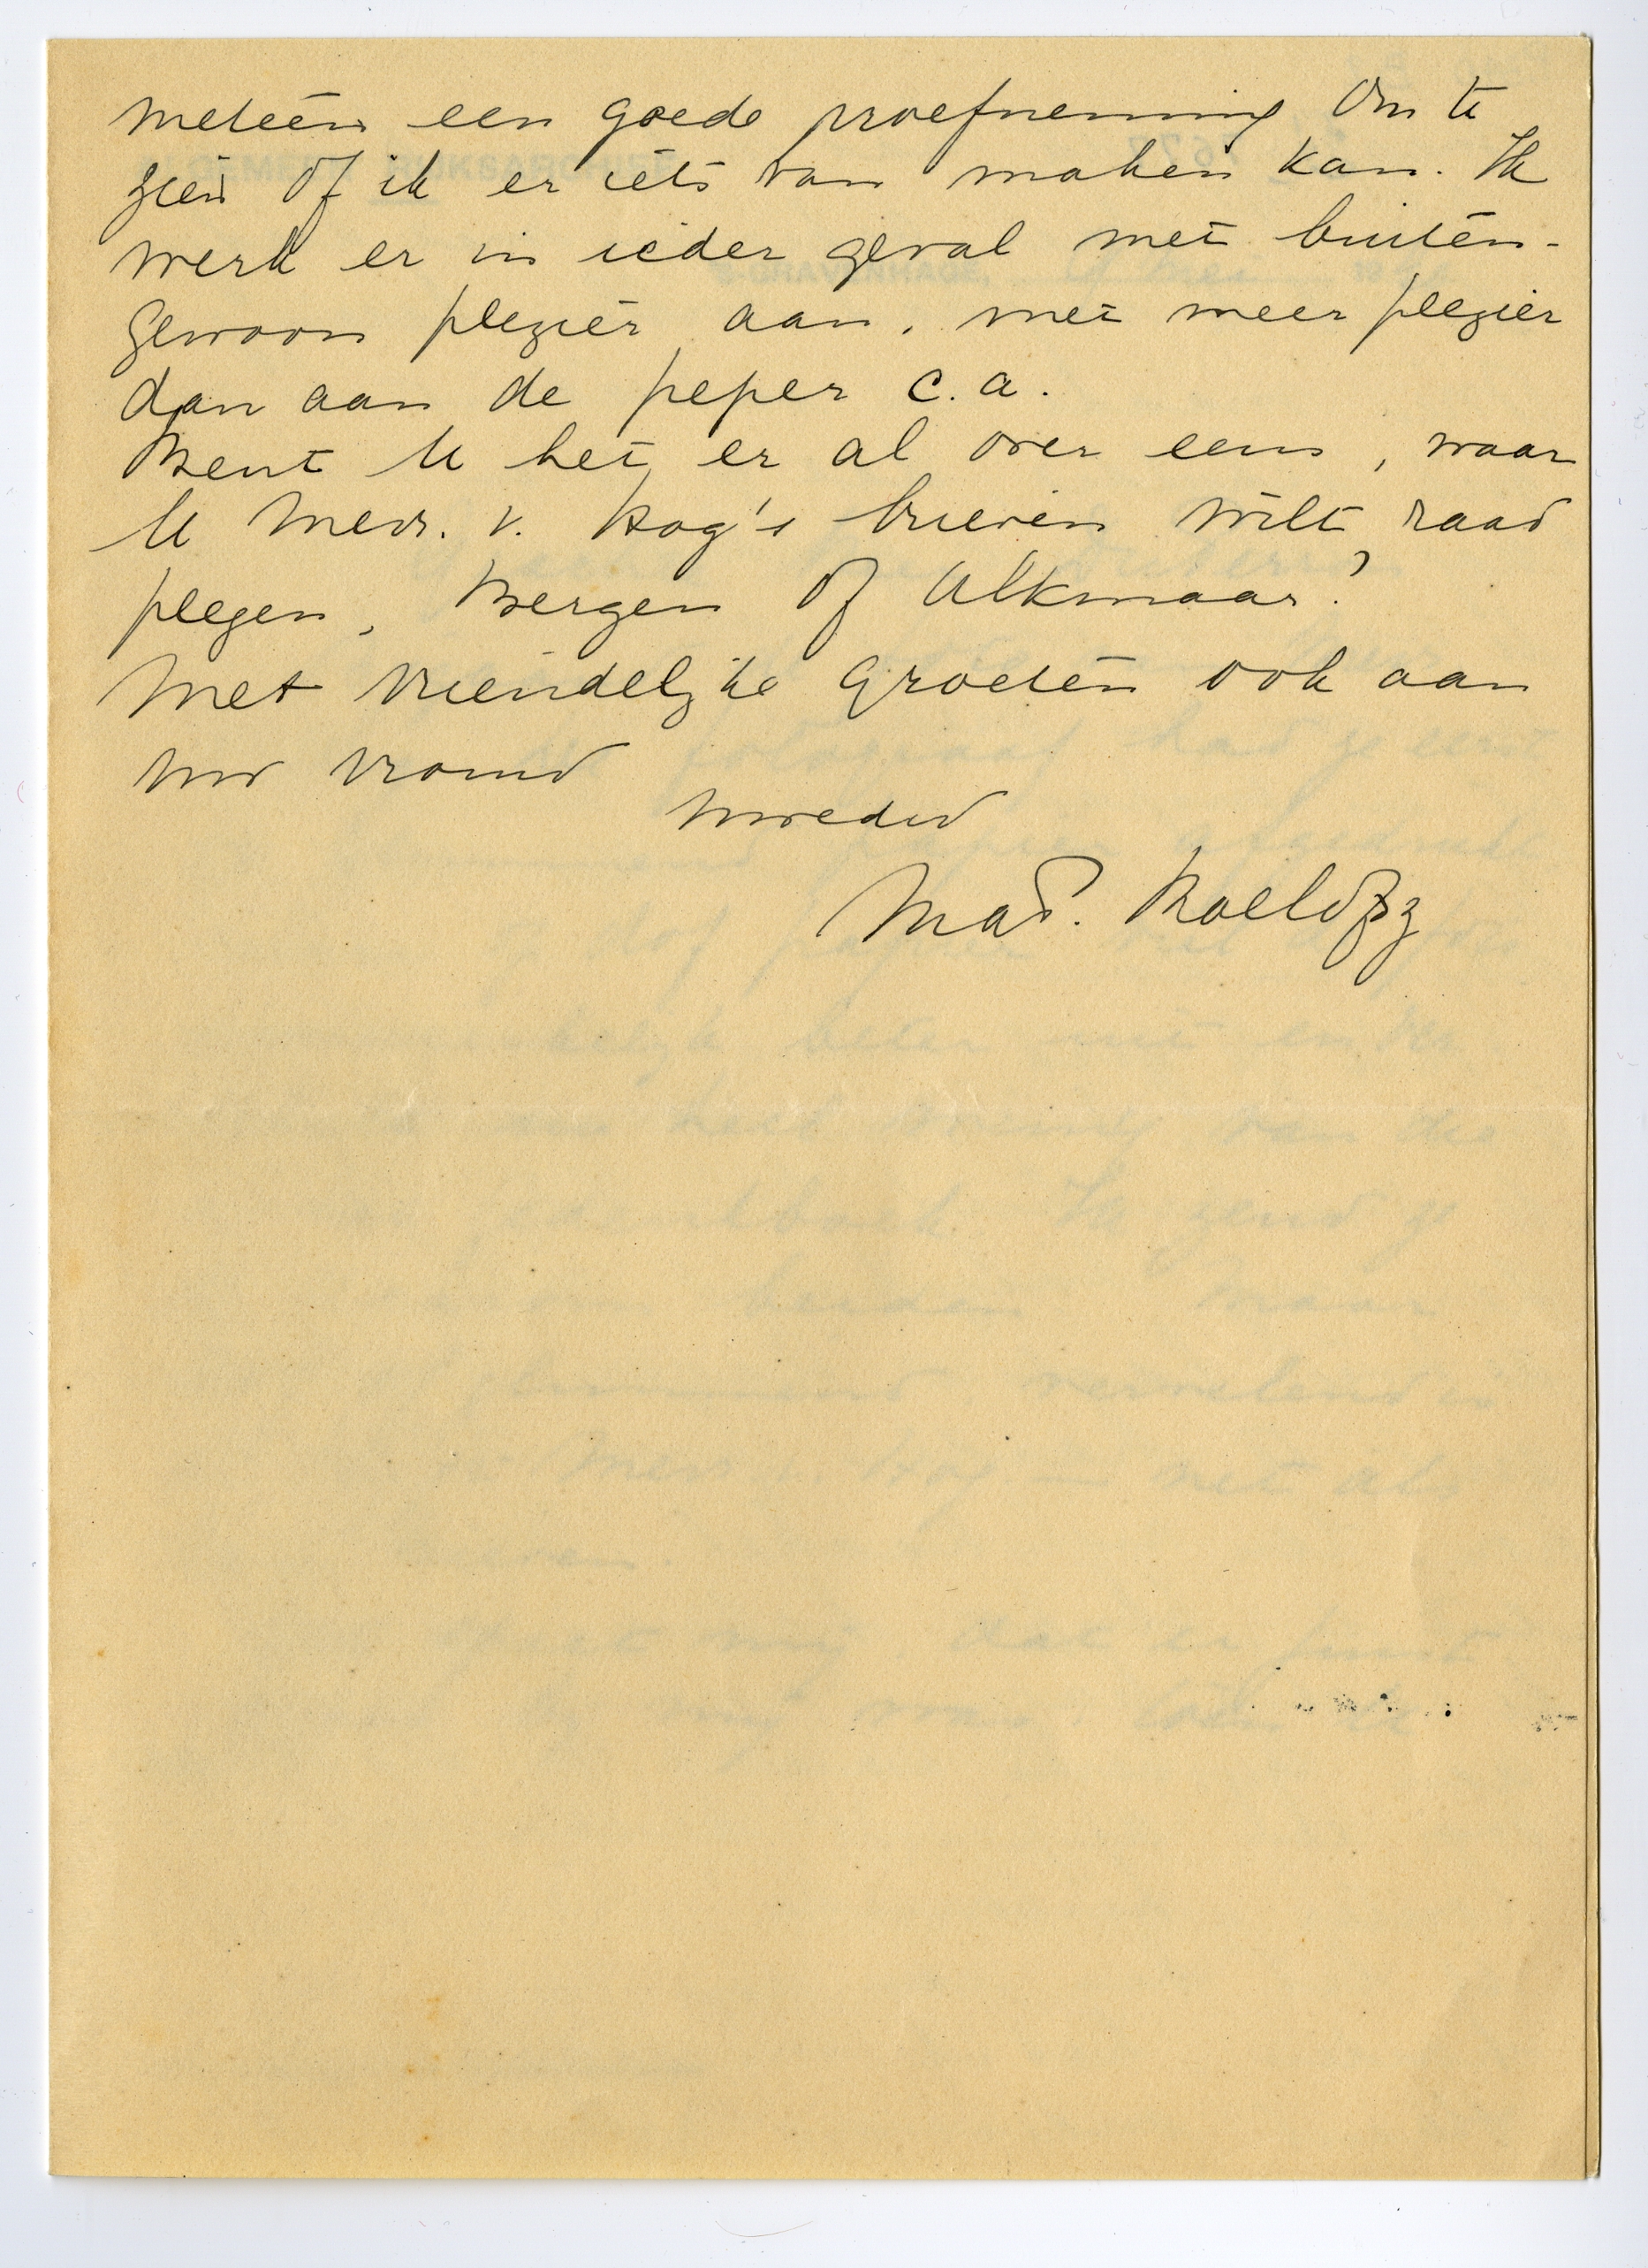 meteen een goede proefneming om te
zien of ik er iets van maken kan. Ik
werk er in ieder geval met buiten-
gewoon plezier aan, met meer plezier
dan aan de peper c.a.
Bent U het er al over eens, waar
U Mevr. v. Hog's brieven wilt raad
plegen, Bergen of Alkmaar?
Met vriendelijke groeten ook aan
Uw vrouw
Uw
Mad. Roelofsz